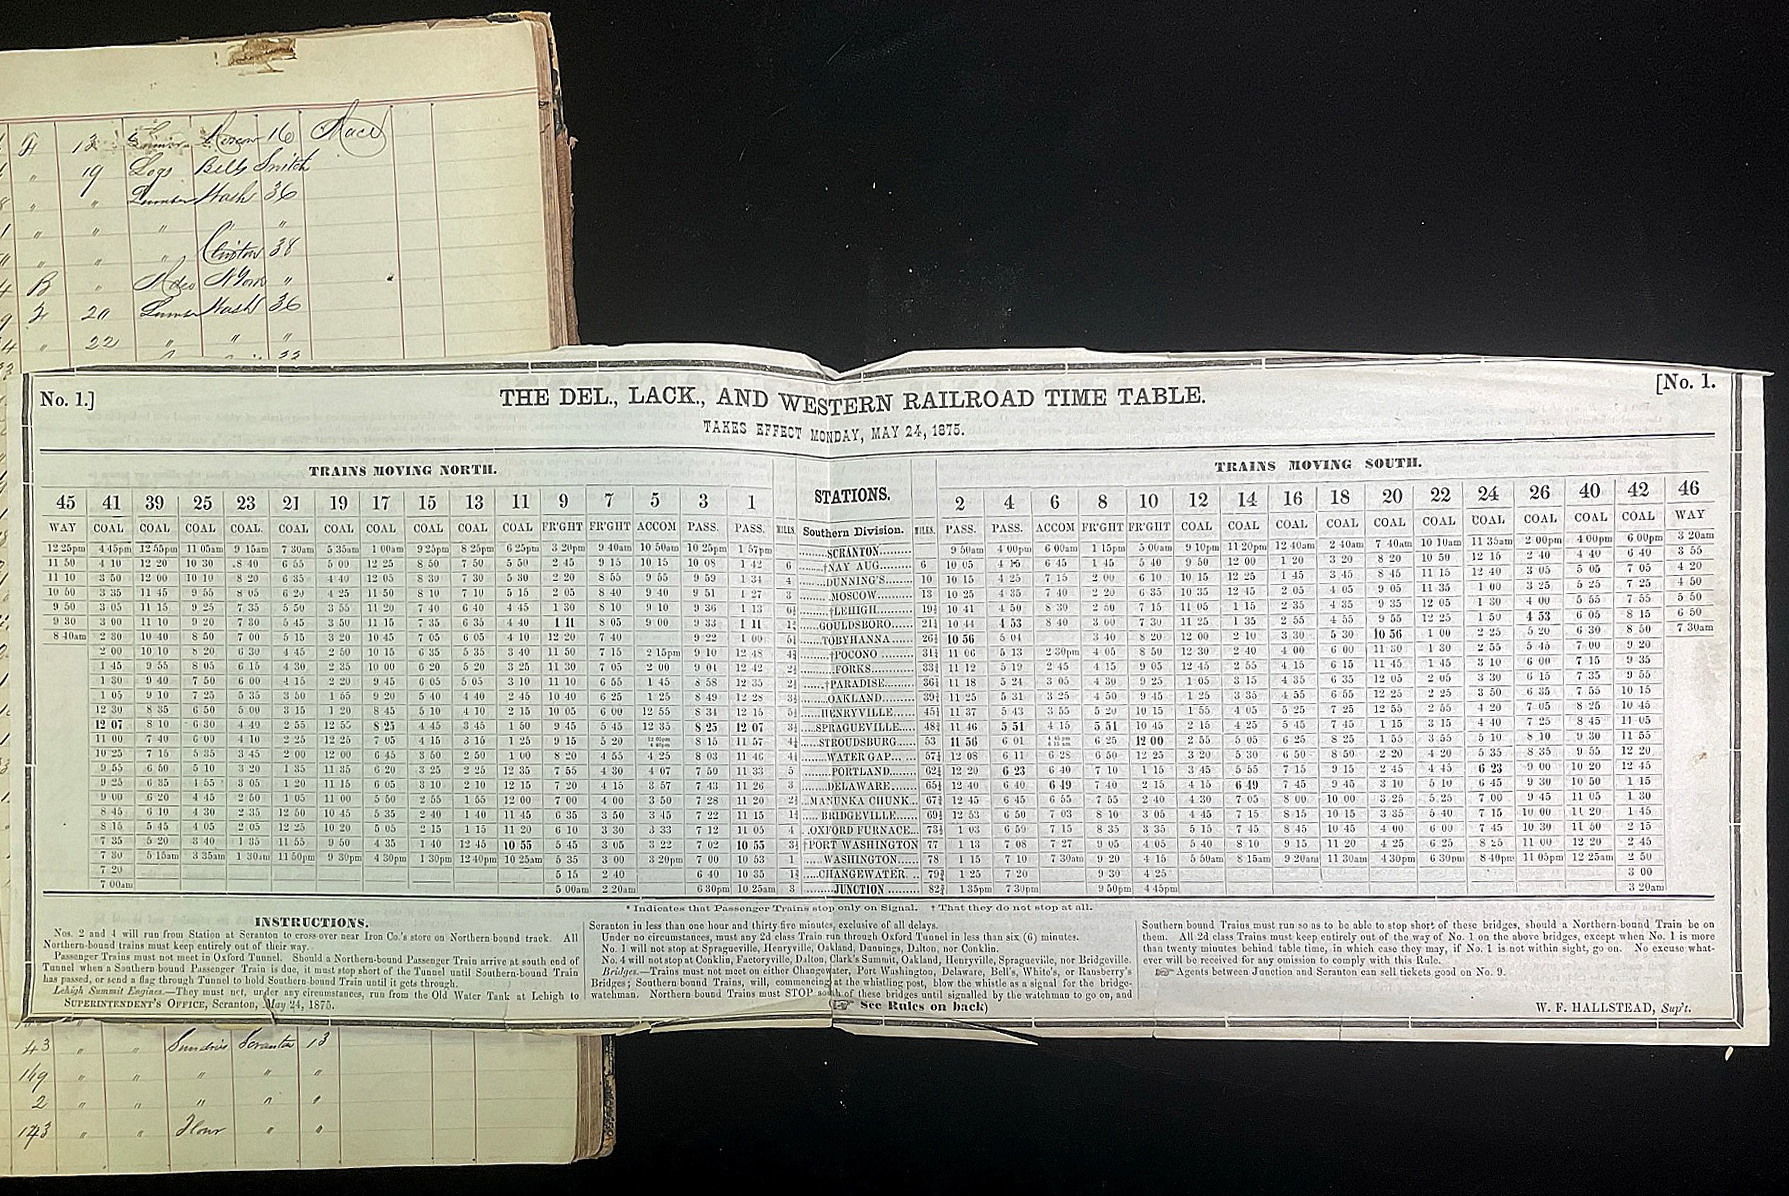 12 Scranton 16
" 19 Logs Bells Switch
" " Lumber Wash 36
" " "
" " Clinton 38
B " N York "
20 Lumber Wash 36
" 22 " " "
No. 1.] THE DEL., LACK., AND WESTERN RAILROAD TIME TABLE. [No. 1.
TAKES EFFECT MONDAY, MAY 24, 1875.
TRAINS MOVING NORTH. STATIONS. TRAINS MOVING SOUTH.
45 41 39 25 23 21 19 17 15 13 11 9 7 5 3 1 2 4 6 8 10 12 14 16 18 20 22 24 26 40 42 46
WAY COAL COAL COAL COAL. COAL COAL COAL COAL COAL COAL FR'GHT FR'GHT ACCOM PASS. PASS. MILES. Southern Division. MILES. PASS. PASS. ACCOM FR'GHT FR'GHT COAL COAL COAL COAL COAL COAL COAL COAL COAL COAL WAY
12 25pm 4 45pm 12 55pm 11 05am 9 15am 7 30am 5 35am 1 00am 9 25pm 8 25pm 6 25pm 3 20pm 9 40am 10 50am 10 25pm 1 57pm SCRANTON 9 50am 4 00pm 6 00am 1 15pm 5 00am 9 10pm 11 20pm 12 40am 2 40am 7 40am 10 10am 11 35am 2 00pm 4 00pm 6 00pm 3 20am
11 50 4 10 12 20 10 30 8 40 6 55 5 00 12 25 8 50 7 50 5 50 2 45 9 15 10 15 10 08 1 42 6 †NAY AUG 6 10 05 4 15 6 45 1 45 5 40 9 50 12 00 1 20 3 20 8 20 10 50 12 15 2 40 4 40 6 40 3 55
11 10 3 50 12 00 10 10 8 20 6 35 4 40 12 05 8 30 7 30 5 30 2 20 8 55 9 55 9 59 1 34 4 DUNNING'S 10 10 15 4 25 7 15 2 00 6 10 10 15 12 25 1 45 3 45 8 45 11 15 12 40 3 05 5 05 7 05 4 20
10 50 3 35 11 45 9 55 8 05 6 20 4 25 11 50 8 10 7 10 5 15 2 05 8 40 9 40 9 51 1 27 3 MOSCOW 13 10 25 4 35 7 40 2 20 6 35 10 35 12 45 2 05 4 05 9 05 11 35 1 00 3 25 5 25 7 25 4 50
9 50 3 05 11 15 9 25 7 35 5 50 3 55 11 20 7 40 6 40 4 45 1 30 8 10 9 10 9 36 1 13 6½ †LEHIGH 19½ 10 41 4 50 8 30 2 50 7 15 11 05 1 15 2 35 4 35 9 35 12 05 1 30 4 00 5 55 7 55 5 50
9 30 3 00 11 10 9 20 7 30 5 45 3 50 11 15 7 35 6 35 4 40 1 11 8 05 9 00 9 33 1 11 GOULDSBORO 21 10 44 4 53 8 40 3 00 7 30 11 25 1 35 2 55 4 55 9 55 12 25 1 50 4 53 6 05 8 15 6 50
8 40am 2 30 10 40 8 50 7 00 5 15 3 20 10 45 7 05 6 05 4 10 12 20 7 40 9 22 1 00 5 TOBYHANNA 26 10 56 5 04 3 40 8 20 12 00 2 10 3 30 5 30 10 56 1 00 2 25 5 20 6 30 8 50 7 30am
2 00 10 10 8 20 6 30 4 45 2 50 10 15 6 35 5 35 3 40 11 50 7 15 2 15pm 9 10 12 48 †POCONO 31 11 06 5 13 2 30pm 4 05 8 50 12 30 2 40 4 00 6 00 11 30 1 30 2 55 5 45 7 00 9 20
1 45 9 55 8 05 6 15 4 30 2 35 10 00 6 20 5 20 3 25 11 30 7 05 2 00 9 04 12 42 FORKS 33 11 12 5 19 2 45 4 15 9 05 12 45 2 55 4 15 6 15 11 45 1 45 3 10 6 00 7 15 9 35
1 30 9 40 7 50 6 00 4 15 2 20 9 45 6 05 5 05 3 10 11 10 6 55 1 45 8 58 12 35 †PARADISE 36 11 18 5 24 3 05 4 30 9 25 1 05 3 15 4 35 6 35 12 05 2 05 3 30 6 15 7 35 9 55
1 05 9 10 7 25 5 35 3 50 1 55 9 20 5 40 4 40 2 45 10 40 6 25 1 25 8 49 12 28 OAKLAND 39 11 25 5 31 3 25 4 50 9 45 1 25 3 35 4 55 6 55 12 25 2 25 3 50 6 35 7 55 10 15
12 30 8 35 6 50 5 00 3 15 1 20 8 45 5 10 4 10 2 15 10 05 6 00 12 55 8 34 12 15 HENRYVILLE 45 11 37 5 43 3 55 5 20 10 15 1 55 4 05 5 25 7 25 12 55 2 55 4 20 7 05 8 25 10 45
12 07 8 10 6 30 4 40 2 55 12 55 8 25 4 45 3 45 1 50 9 45 5 45 12 35 8 25 12 07 SPRAGUEVILLE 48 11 46 5 51 4 15 5 51 10 45 2 15 4 25 5 45 7 45 1 15 3 15 4 40 7 25 8 45 11 05
11 00 7 40 6 00 4 10 2 25 12 25 7 05 4 15 3 15 1 25 9 15 5 20 8 15 11 57 STROUDSBURG 53 11 56 6 01 6 25 12 00 2 55 5 05 6 25 8 25 1 55 3 55 5 10 8 10 9 30 11 55
10 25 7 15 5 35 3 45 2 00 12 00 6 45 3 50 2 50 1 00 8 20 4 55 4 25 8 03 11 46 WATER GAP 57 12 08 6 11 6 28 6 50 12 25 3 20 5 30 6 50 8 50 2 20 4 20 5 35 8 35 9 55 12 20
9 55 6 50 5 10 3 20 1 35 11 35 6 20 3 25 2 25 12 35 7 55 4 30 4 07 7 50 11 33 5 PORTLAND 62 12 20 6 23 6 40 7 10 1 15 3 45 5 55 7 15 9 15 2 45 4 45 6 23 9 00 10 20 12 45
9 25 6 35 4 55 3 05 1 20 11 15 6 05 3 10 2 10 12 15 7 20 4 15 3 57 7 43 11 26 3 DELAWARE 65 12 40 6 40 6 49 7 40 2 15 4 15 6 49 7 45 9 45 3 10 5 10 6 45 9 30 10 50 1 15
9 00 6 20 4 45 2 50 1 05 11 00 5 50 2 55 1 55 12 00 7 00 4 00 3 50 7 28 11 20 MANUNKA CHUNK 67 12 45 6 45 6 55 7 55 2 40 4 30 7 05 8 00 10 00 3 25 5 25 7 00 9 45 11 05 1 30
8 45 6 10 4 30 2 35 12 50 10 45 5 35 2 40 1 40 11 45 6 35 3 50 3 45 7 22 11 15 BRIDGEVILLE 69 12 53 6 50 7 03 8 10 3 05 4 45 7 15 8 15 10 15 3 35 5 40 7 15 10 00 11 20 1 45
8 15 5 45 4 05 2 05 12 25 10 20 5 05 2 15 1 15 11 20 6 10 3 30 3 33 7 12 11 05 4 OXFORD FURNACE 73 1 03 6 59 7 15 8 35 3 35 5 15 7 45 8 45 10 45 4 00 6 00 7 45 10 30 11 50 2 15
7 35 5 20 3 40 1 35 11 55 9 50 4 35 1 40 12 45 10 55 5 45 3 05 3 22 7 02 10 55 PORT WASHINGTON 77 1 13 7 08 7 27 9 05 4 05 5 40 8 10 9 15 11 20 4 25 6 25 8 25 11 00 12 20 2 45
7 30 5 15am 3 35am 1 30am 11 50pm 9 30pm 4 30pm 1 30pm 12 40pm 10 25am 5 35 3 00 3 20pm 7 00 10 53 1 WASHINGTON 78 1 15 7 10 7 30am 9 20 4 15 5 50am 8 15am 9 20am 11 30am 4 30pm 6 30pm 8 40pm 11 05pm 12 25am 2 50
7 20 5 15 2 40 6 40 10 35 CHANGEWATER 79 1 25 7 20 9 30 4 25 3 00
7 00am 5 00am 2 20am 6 30pm 10 25am 3 JUNCTION 82 1 35pm 7 30pm 9 50pm 4 45pm 3 20am
* Indicates that Passenger Trains stop only on Signal. † That they do not stop at all.
INSTRUCTIONS.
Nos. 2 and 4 will run from Station at Scranton to cross-over near Iron Co.'s store on Northern-bound track. All
Northern-bound trains must keep entirely out of their way.
Passenger Trains must not meet in Oxford Tunnel. Should a Northern-bound Passenger Train arrive at south end of
Tunnel when a Southern-bound Passenger Train is due, it must stop short of the Tunnel until Southern-bound Train
has passed, or send a flag through Tunnel to hold Southern-bound Train until it gets through.
Lehigh Summit Engines.—They must not, under any circumstances, run from the Old Water Tank at Lehigh to
SUPERINTENDENT'S OFFICE, Scranton, May 24, 1875.
Scranton in less than one hour and thirty-five minutes, exclusive of all delays.
Under no circumstances, must any 2d class Train run through Oxford Tunnel in less than six (6) minutes.
No. 1 will not stop at Spragueville, Henryville, Oakland, Dunnings, Dalton, nor Conklin.
No. 4 will not stop at Conklin, Factoryville, Dalton, Clark's Summit, Oakland, Henryville, Spragueville, nor Bridgeville.
Bridges.—Trains must not meet on either Changewater, Port Washington, Delaware, Bell's, White's, or Ransberry's
Bridges; Southern-bound Trains, will, commencing at the whistling post, blow the whistle as a signal for the bridge-
watchman. Northern-bound Trains must STOP south of these bridges until signalled by the watchman to go on, and
(☞ See Rules on back)
Southern bound Trains must run so as to be able to stop short of these bridges, should a Northern-bound Train be on
them. All 2d class Trains must keep entirely out of the way of No. 1 on the above bridges, except when No. 1 is more
than twenty minutes behind table time, in which case they may, if No. 1 is not within sight, go on. No excuse what-
ever will be received for any omission to comply with this Rule.
☞ Agents between Junction and Scranton can sell tickets good on No. 9.
W. F. HALLSTEAD, Sup't.
43 " " Sundries Scranton 13
149 " " " " "
2 " " " " "
143 " " Flour " "